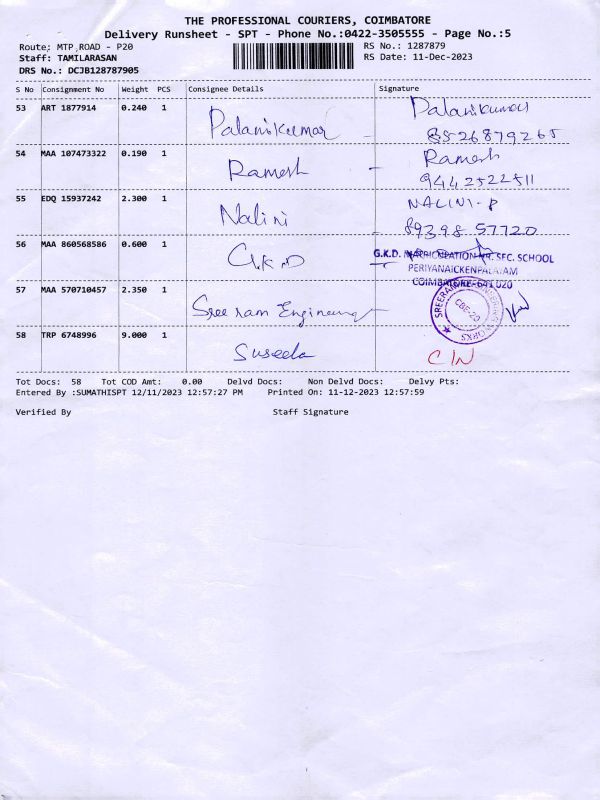 THE PROFESSIONAL COURIERS, COIMBATORE
Delivery Runsheet - SPT - Phone No.:0422-3505555 - Page No.:5
Route: MTP ROAD - P20
RS No.: 1287879
Staff: TAMILARASAN
RS Date: 11-Dec-2023
DRS No.: DCJB128787905
S No Consignment No Weight PCS Consignee Details Signature
53 ART 1877914 0.240 1 Palanikumar Palanikumar
8526879265
54 MAA 107473322 0.190 1 Ramesh Ramesh
9442522511
55 EDQ 15937242 2.300 1 Nalini NALINI-P
89398 57720
56 MAA 860568586 0.600 1 G.K.D G.K.D. MATRICULATION HR. SEC. SCHOOL
PERIYANAICKENPALAYAM
COIMBATORE-641 020
57 MAA 570710457 2.350 1 Sree ram Engineering SREERAM ENGINEERING WORKS
CBE-20
58 TRP 6748996 9.000 1 Suseela CIN
Tot Docs: 58 Tot COD Amt: 0.00 Delvd Docs: Non Delvd Docs: Delvy Pts:
Entered By :SUMATHISPT 12/11/2023 12:57:27 PM Printed On: 11-12-2023 12:57:59
Verified By Staff Signature